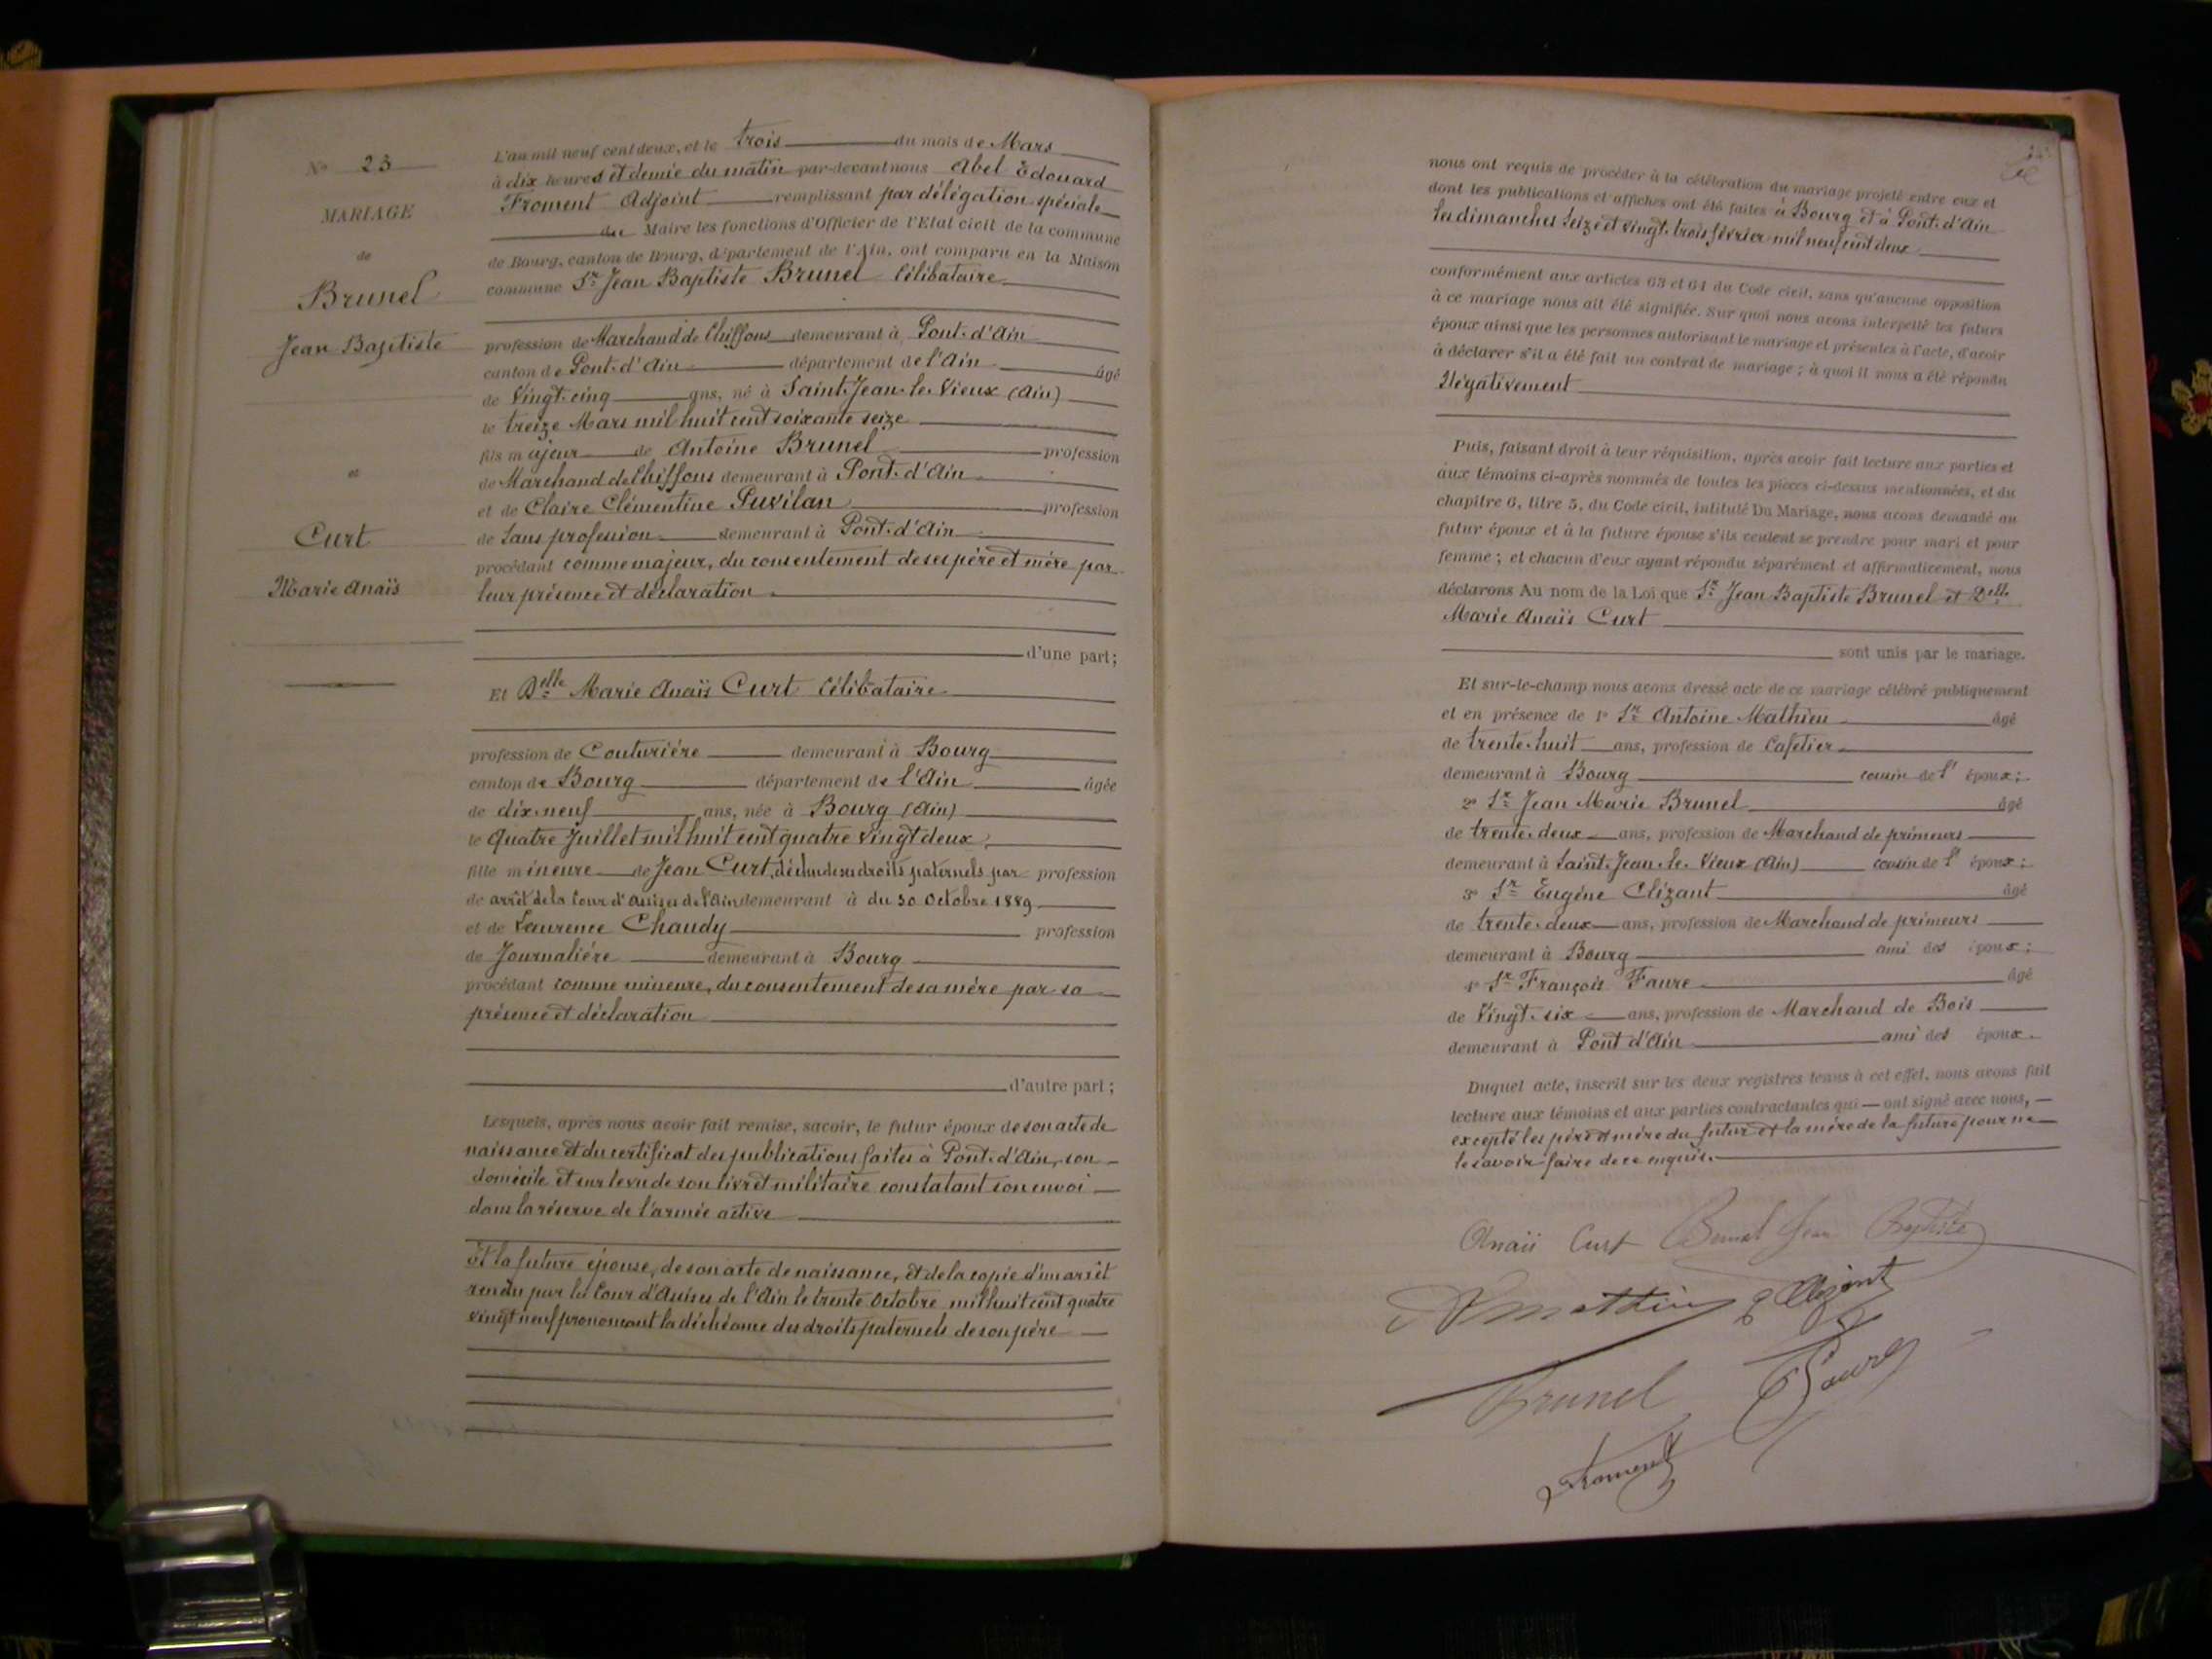 N° 23
MARIAGE
de
Brunel
Jean Baptiste
et
Curt
Marie Anaïs
L'an mil neuf cent deux, et le trois du mois de Mars
à dix heures et demie du matin par-devant nous Abel Edouard
Froment Adjoint remplissant par délégation spéciale
du Maire les fonctions d'Officier de l'Etat civil de la commune
de Bourg, canton de Bourg, département de l'Ain, ont comparu en la Maison
commune Sr Jean Baptiste Brunel Célibataire
profession de Marchand de Chiffons demeurant à Pont-d'Ain
canton de Pont-d'Ain département de l'Ain âgé
de Vingt-cinq ans, né à Saint-Jean-le-Vieux (Ain)
le treize Mars mil huit cent soixante seize
fils majeur de Antoine Brunel profession
de Marchand de Chiffons demeurant à Pont-d'Ain
et de Claire Clémentine Puvilan profession
de Sans profession demeurant à Pont-d'Ain
procédant comme majeur, du consentement de ses père et mère par
leur présence et déclaration
d'une part;
Et Delle Marie Anaïs Curt Célibataire
profession de Couturière demeurant à Bourg
canton de Bourg département de l'Ain âgée
de dix-neuf ans, née à Bourg (Ain)
le Quatre Juillet mil huit cent quatre vingt deux
fille mineure de Jean Curt, déchu de ses droits paternels par profession
de arrêt de la Cour d'Assises de l'Ain demeurant à du 30 Octobre 1889
et de Laurence Chaudy profession
de Journalière demeurant à Bourg
procédant comme mineure, du consentement de sa mère par sa
présence et déclaration
d'autre part;
Lesquels, après nous avoir fait remise, savoir, le futur époux de son acte de
naissance et du certificat des publications faites à Pont-d'Ain, son
domicile et sur le vu de son livret militaire constatant son envoi
dans la réserve de l'armée active
Et la future épouse, de son acte de naissance, et de la copie d'un arrêt
rendu par la Cour d'Assises de l'Ain le trente Octobre mil huit cent quatre
vingt neuf prononçant la déchéance des droits paternels de son père
nous ont requis de procéder à la célébration du mariage projeté entre eux et
dont les publications et affiches ont été faites à Bourg et à Pont-d'Ain
les dimanches Seize et vingt-trois février mil neuf cent deux
conformément aux articles 63 et 64 du Code civil, sans qu'aucune opposition
à ce mariage nous ait été signifiée. Sur quoi nous avons interpellé les futurs
époux ainsi que les personnes autorisant le mariage et présentes à l'acte, d'avoir
à déclarer s'il a été fait un contrat de mariage; à quoi il nous a été répondu
Négativement
Puis, faisant droit à leur réquisition, après avoir fait lecture aux parties et
aux témoins ci-après nommés de toutes les pièces ci-dessus mentionnées, et du
chapitre 6, titre 5, du Code civil, intitulé Du Mariage, nous avons demandé au
futur époux et à la future épouse s'ils veulent se prendre pour mari et pour
femme; et chacun d'eux ayant répondu séparément et affirmativement, nous
déclarons Au nom de la Loi que Sr Jean Baptiste Brunel et Delle
Marie Anaïs Curt
sont unis par le mariage.
Et sur-le-champ nous avons dressé acte de ce mariage célébré publiquement
et en présence de 1° Sr Antoine Mathieu âgé
de trente-huit ans, profession de Cafetier
demeurant à Bourg cousin de l'époux;
2° Sr Jean Marie Brunel âgé
de trente-deux ans, profession de Marchand de primeurs
demeurant à Saint-Jean-le-Vieux (Ain) cousin de l'époux;
3° Sr Eugène Clizant âgé
de trente-deux ans, profession de Marchand de primeurs
demeurant à Bourg ami des époux;
4° Sr François Faure âgé
de Vingt-six ans, profession de Marchand de Bois
demeurant à Pont d'Ain ami des époux.
Duquel acte, inscrit sur les deux registres tenus à cet effet, nous avons fait
lecture aux témoins et aux parties contractantes qui — ont signé avec nous, —
excepté les père et mère du futur et la mère de la future pour ne
le savoir faire de ce enquis.
Anaïs Curt Brunel Jean Baptiste
Mathieu
Brunel Faure
Froment